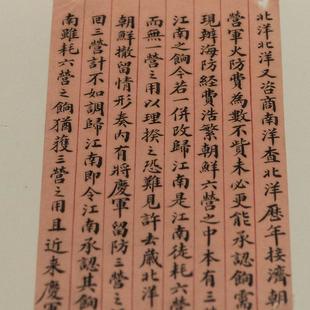 北洋北洋又咨商南洋查北洋歷年接濟朝
營軍火防費為數不貲未必更能承認餉需
現辦海防經費浩繁朝鮮六營之中本有三
江南之餉今若一併改歸江南是江南徒耗六
而無一營之用以理揆之恐難見許去歲北洋
朝鮮撤留情形奏內有將慶軍留防三營之
回三營計不如調歸江南即令江南承認其餉
南雖耗六營之餉猶獲三營之用且近來慶軍